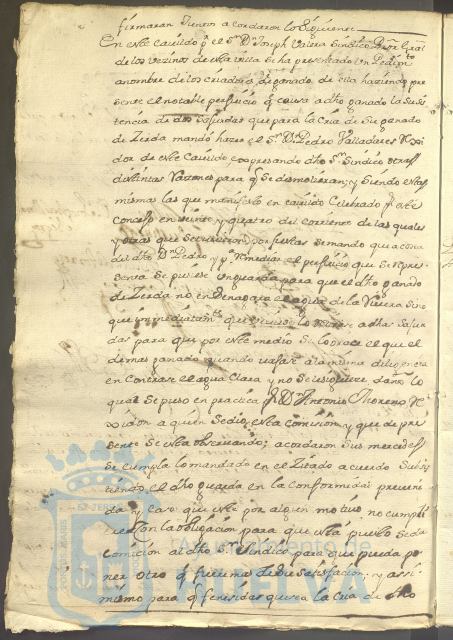 firmaran Juntos acordaron lo Siguiente
En este Cavildo pr el Sr Dn Joseph Valera Sindico Pror Gral
de los vezinos de esta villa Se ha presentado un Pedimto
a nombre de los criadores de ganado de ella haziendo pre
sente el notable perjuicio q causa a dho ganado la Susis
tencia de dos Safurdas que para la Cria de Su ganado
de Zerda mandó hazer el Sr Dn Pedro Valladares Rexi
dor de este Cavildo expresando dho Sr Sindico otras
distintas Razones para q Se desmolieran; y Siendo estas
mismas las que manifestó en cavildo Celebrado pr este
Concejo en veinte y quatro del corriente de las quales
y otras que Se tuvieron por justas Se mandó que a costa
del dho Dn Pedro y pa Remediar el perjuicio que Se repre
senta Se pusiese un guarda para que el dho ganado
de Zerda no en el agua de la Rivera Sino
que inmediatamte que a dhas Safur
das para que por este medio Se lograse el que el
demas ganado quando vajase a la misma diligencia
en Contrase el agua Clara y no Se Siguiere daño lo
qual Se puso en practica pr Dn Antonio Moreno Re
xidor a quien Se dio esta comision y que de pre
sente Se esta observando; acordaron Sus mercedes
Se cumpla lo mandado en el Zitado acuerdo Subsis
tiendo el dho guarda en la Conformidad preveni
da y caso que este por algun motivo no cumplie
re con la obligacion para que esta puesto Se da
comision al dho Sr Sindico para que pueda po
ner otro q fuere mas de Su Satisfacion; y assi
mismo para q fenesida que sea la Cria de dho